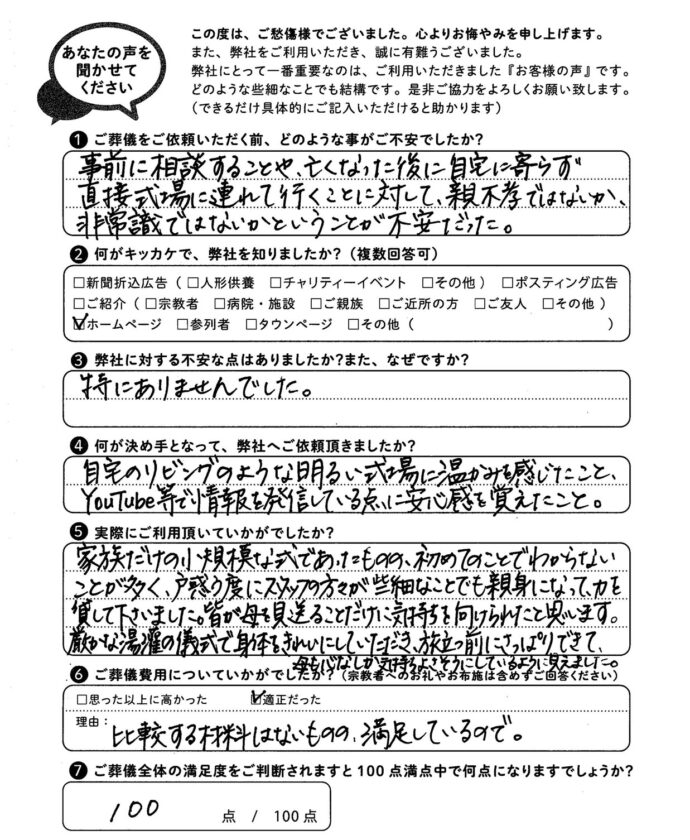 あなたの声を
聞かせて
ください
この度は、ご愁傷様でございました。心よりお悔やみを申し上げます。
また、弊社をご利用いただき、誠に有難うございました。
弊社にとって一番重要なのは、ご利用いただきました『お客様の声』です。
どのような些細なことでも結構です。是非ご協力をよろしくお願い致します。
(できるだけ具体的にご記入いただけると助かります)
❶ ご葬儀をご依頼いただく前、どのような事がご不安でしたか?
事前に相談することや、亡くなった後に自宅に寄らず
直接式場に連れて行くことに対して、親不孝ではないか、
非常識ではないかということが不安だった。
❷ 何がキッカケで、弊社を知りましたか?(複数回答可)
□新聞折込広告(□人形供養 □チャリティーイベント □その他) □ポスティング広告
□ご紹介(□宗教者 □病院・施設 □ご親族 □ご近所の方 □ご友人 □その他)
☑ホームページ □参列者 □タウンページ □その他( )
❸ 弊社に対する不安な点はありましたか?また、なぜですか?
特にありませんでした。
❹ 何が決め手となって、弊社へご依頼頂きましたか?
自宅のリビングのような明るい式場に温かみを感じたこと、
YouTube等で情報を発信している点に安心感を覚えたこと。
❺ 実際にご利用頂いていかがでしたか?
家族だけの小規模な式であったものの、初めてのことでわからない
ことが多く、戸惑う度にスタッフの方々が些細なことでも親身になって、力を
貸して下さいました。皆が母を見送ることだけに気持ちを向けられたと思います。
厳かな湯灌の儀式で身体をきれいにしていただき、旅立つ前にさっぱりできて、
母も心なしか気持ちよさそうにしているように見えました。
❻ ご葬儀費用についていかがでしたか?(宗教者へのお礼やお布施は含めずご回答ください)
□思った以上に高かった ☑適正だった
理由:比較する材料はないものの、満足しているので。
❼ ご葬儀全体の満足度をご判断されますと100点満点中で何点になりますでしょうか?
100 点 / 100点